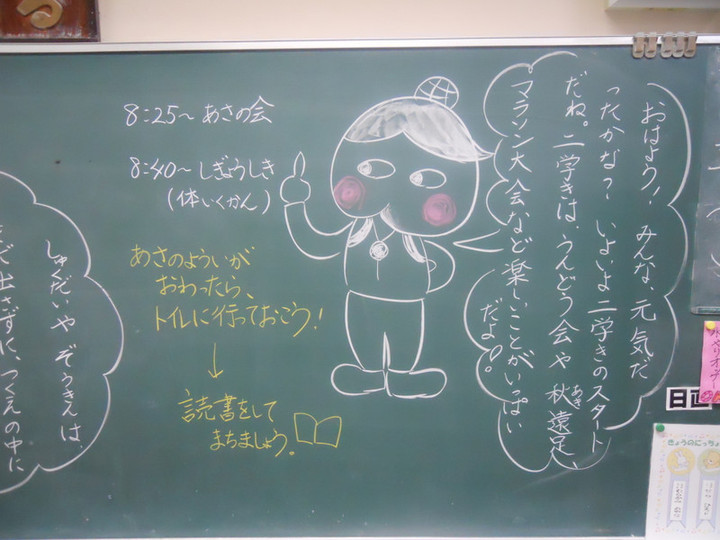 おはよう！みんな、元気だ
ったかな？いよいよ二学きのスタート
だね。二学きは、うんどう会や秋遠足、
あき
マラソン大会など楽しいことがいっぱい
だよ！
8:25〜 あさの会
8:40〜 しぎょうしき
(体いくかん)
あさのよういが
おわったら、
トイレに行っておこう！
↓
読書をして
まちましょう。
しゅくだいや ぞうきんは、
出さずに、つくえの中に
きょうのにっちょく